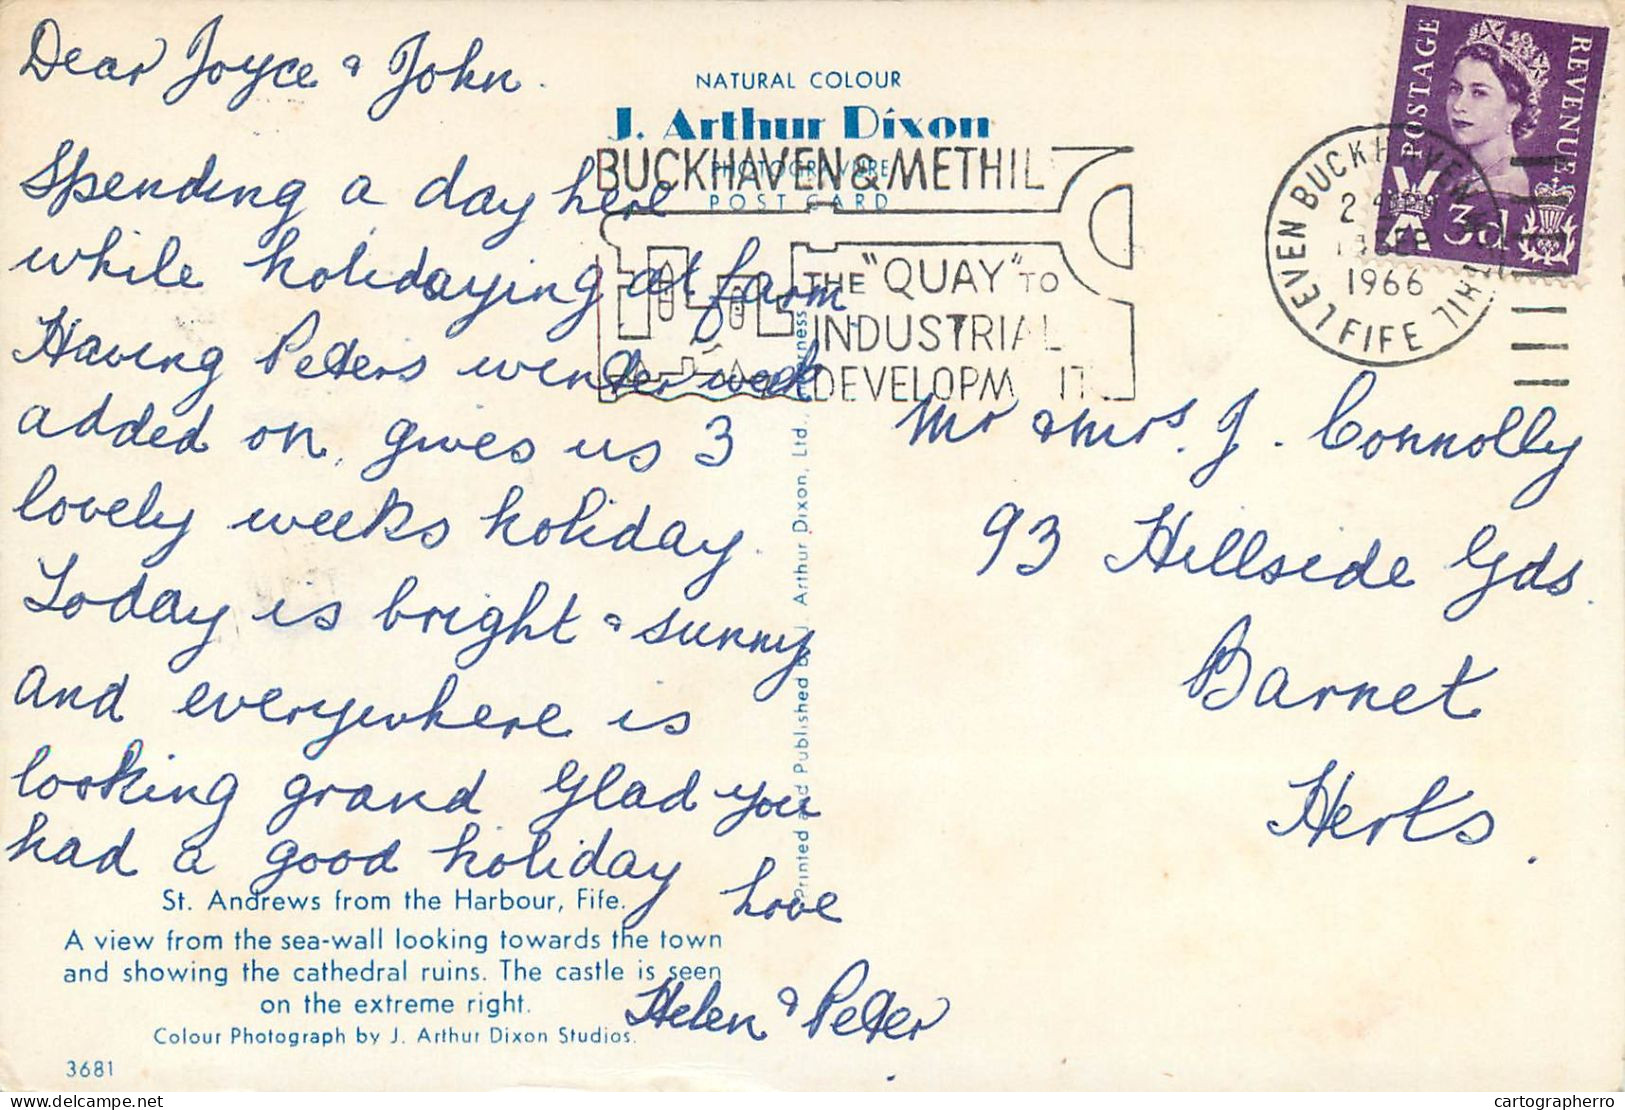 Dear Joyce & John.
Spending a day here
while holidaying at farm.
Having Peters winter week
added on, gives us 3
lovely weeks holiday.
Today is bright & sunny
and everywhere is
looking grand Glad you
had a good holiday
Love
Helen & Peter
NATURAL COLOUR
J. Arthur Dixon
PHOTOGRAVURE
POST CARD
BUCKHAVEN & METHIL
THE "QUAY" TO
INDUSTRIAL
DEVELOPM IT
POSTAGE
REVENUE
3d
LEVEN BUCKHAVEN METHIL
SEP
1966
FIFE
Mr & Mrs. J. Connolly
93 Hillside Gds.
Barnet
Herts.
Printed and Published by J. Arthur Dixon, Ltd.,
St. Andrews from the Harbour, Fife.
A view from the sea-wall looking towards the town
and showing the cathedral ruins. The castle is seen
on the extreme right.
Colour Photograph by J. Arthur Dixon Studios.
3681
delcampe.net
cartographerro